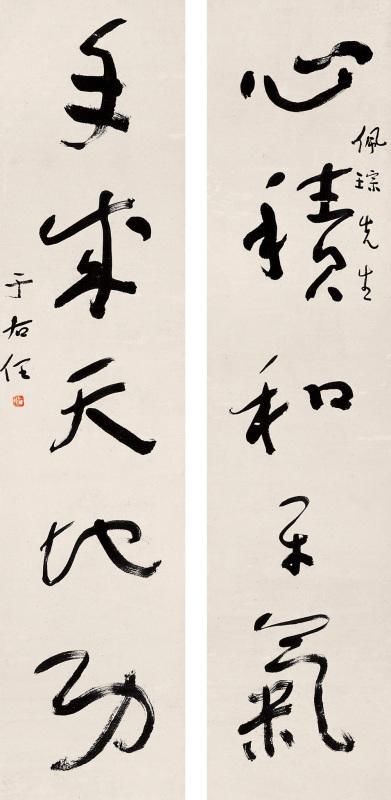 心積和平氣
佩琮先生
手成天地功
于右任